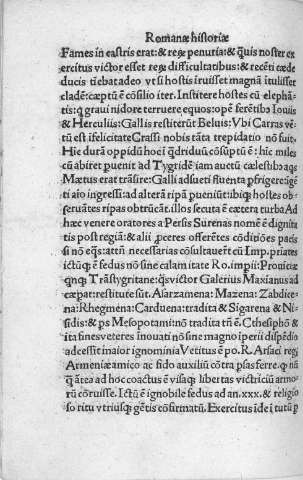 Romanæ historiæ
Fames in castris erat: & reꝝ penuria: & q̃uis noster ex
ercitus victor esset reꝝ difficultatibus: & recēti cæde
ducis tiebat adeo vt si hostis iruisset magnā itulisset
cladē: cæptū ē cōsilio iter. Institere hostes cū elephā-
tis: q graui nidore terruere equos: opē ferētibo Iouiis
& Herculiis: Gallis restiterūt Beluis: Vbi Carras vē
tū est ifelicitate Crassi nobis tāta trepidatio nō fuit.
Hic durā oppidū hoc i q̃driduū cōsūptū ē: hic miles
cū abiret puenit ad Tygridē iam auctū cælestibo aqs
Mætus erat trāsire: Galli adsueti fluenta pfrigere: igē
ti aio ingressi: ad alterā ripā pueniūt: ibiq; hostes ob-
seruātes ripas obtrūcāt. illos secuta ē cætera turba Ad
hæc venere oratores a Persis Surenas nomē ē dignita
tis post regiā: & alii pceres offerētes cōditiōes pacis
si nō eqs: attñ necessarias cōsultauēt cū Imp. priates
ictūq; ē fedus nō sine calamitate Ro. impii: Prouīciæ
qnq; Trāstygritane: qs victor Galerius Maxianus ad
cæpat: restitute sūt. Aiarzamena: Mazena: Zabdice
na: Rhegmena: Carduena: tradita & Sigarena & Ni-
sidis: & ps Mesopotamiṅ nō tradita rñ ē. Cthesiphō & 
ita fines veteres inouati nō sine magno iperii dispēdio
ad cessit maior ignominia Vetitus ē po. R. Arsaci regi
Armeniæ amico ac fido auxiliū cōtra psas ferre. q nū
q̃ antea ad hoc coactus ē visaq; libertas victriciū armo-
rū corruisse. Ictū ē ignobile fedus ad an. xxx. & religio
so ritu vtriusq; gētis cōfirmatū. Exercitus ide i tutū p